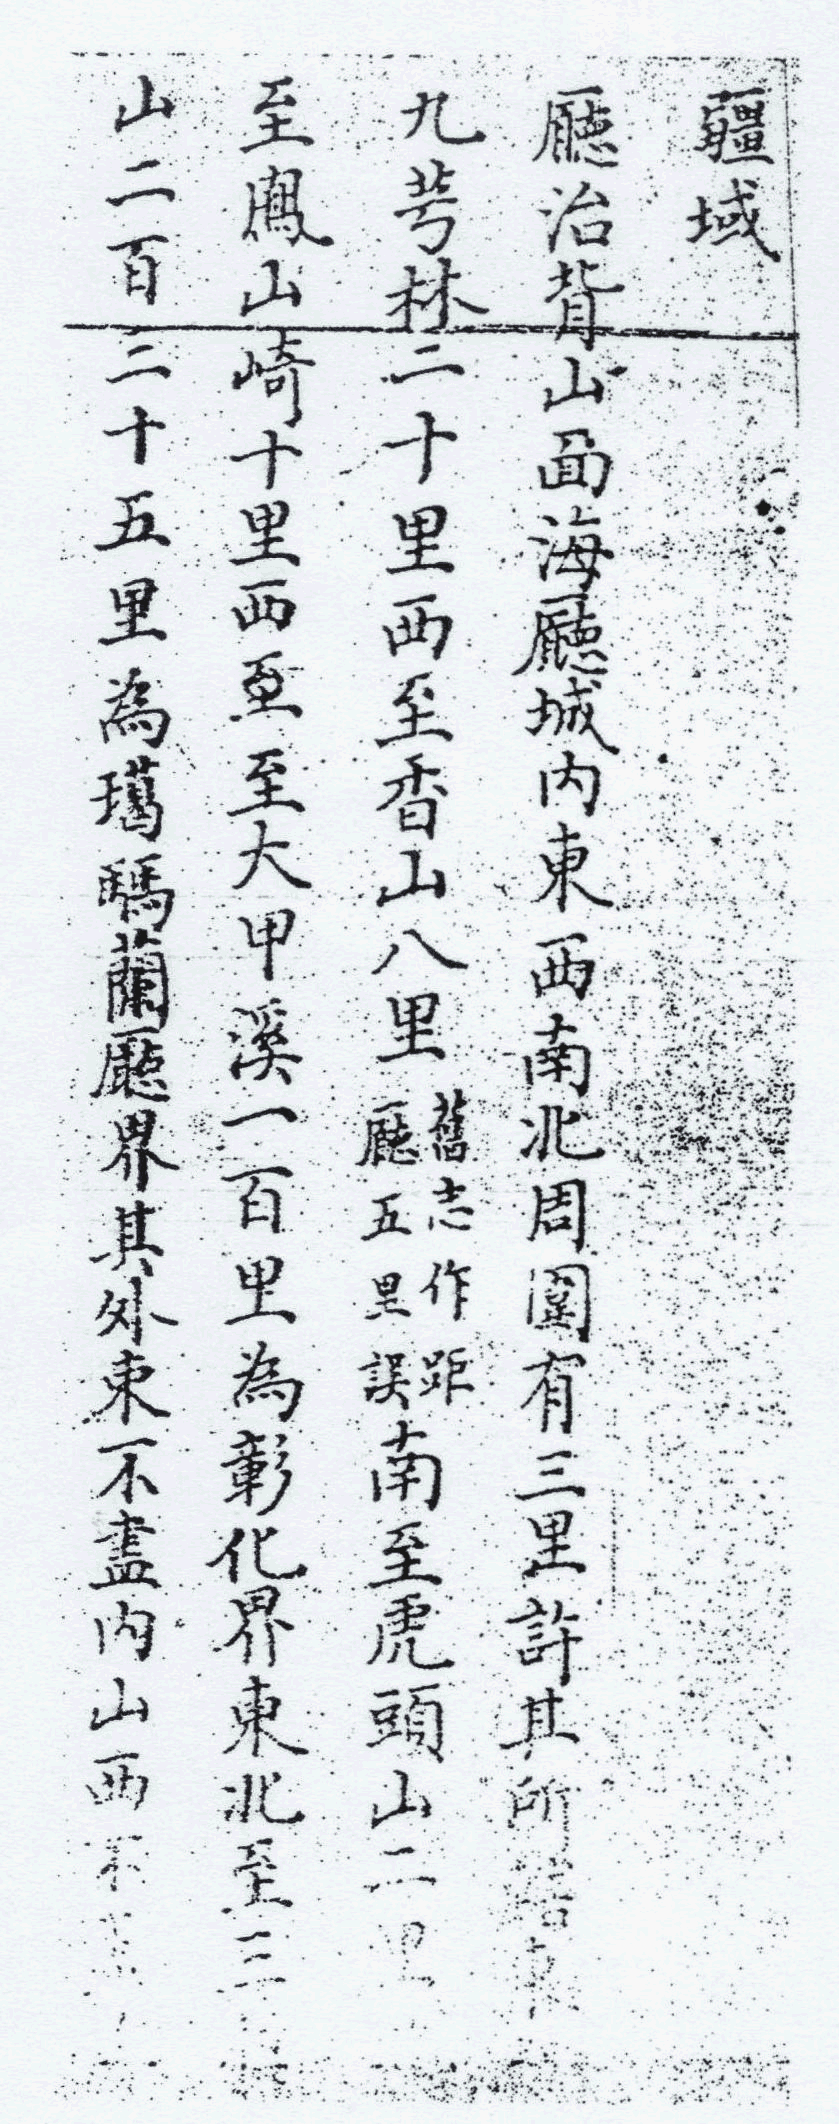 疆域
廳治背山面海廳城內東西南北周圍有三里許其所轄東
九芎林二十里西至香山八里舊志作距廳五里誤南至虎頭山二里
至鳳山崎十里西至至大甲溪一百里為彰化界東北至三
山二百二十五里為噶瑪蘭廳界其外東不盡內山西不